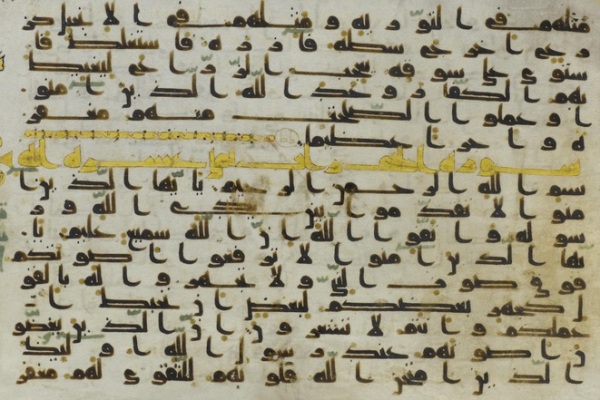 مثلهم في التورىة ومثلهم في الانجيل كز
رع اخرج شطه فازره فاستغلظ فا
ستوى على سوقه يعجب الزراع ليغيظ
بهم الكفار وعد الله الذين امنو
ا وعملوا الصلحت منهم مغفر
ة واجرا عظيما
سورة الحجرات
بسم الله الرحمن الرحيم يايها الذين ا
منوا لا تقدموا بين يدي الله ور
سوله واتقوا الله ان الله سميع عليم يا
يها الذين امنوا لا ترفعوا اصوتكم
فوق صوت النبي ولا تجهروا له بالقو
ل كجهر بعضكم لبعض ان تحبط ا
عملكم وانتم لا تشعرون ان الذين يغضو
ن اصوتهم عند رسول الله اوليك ا
لذين امتحن الله قلوبهم للتقوى لهم مغفر